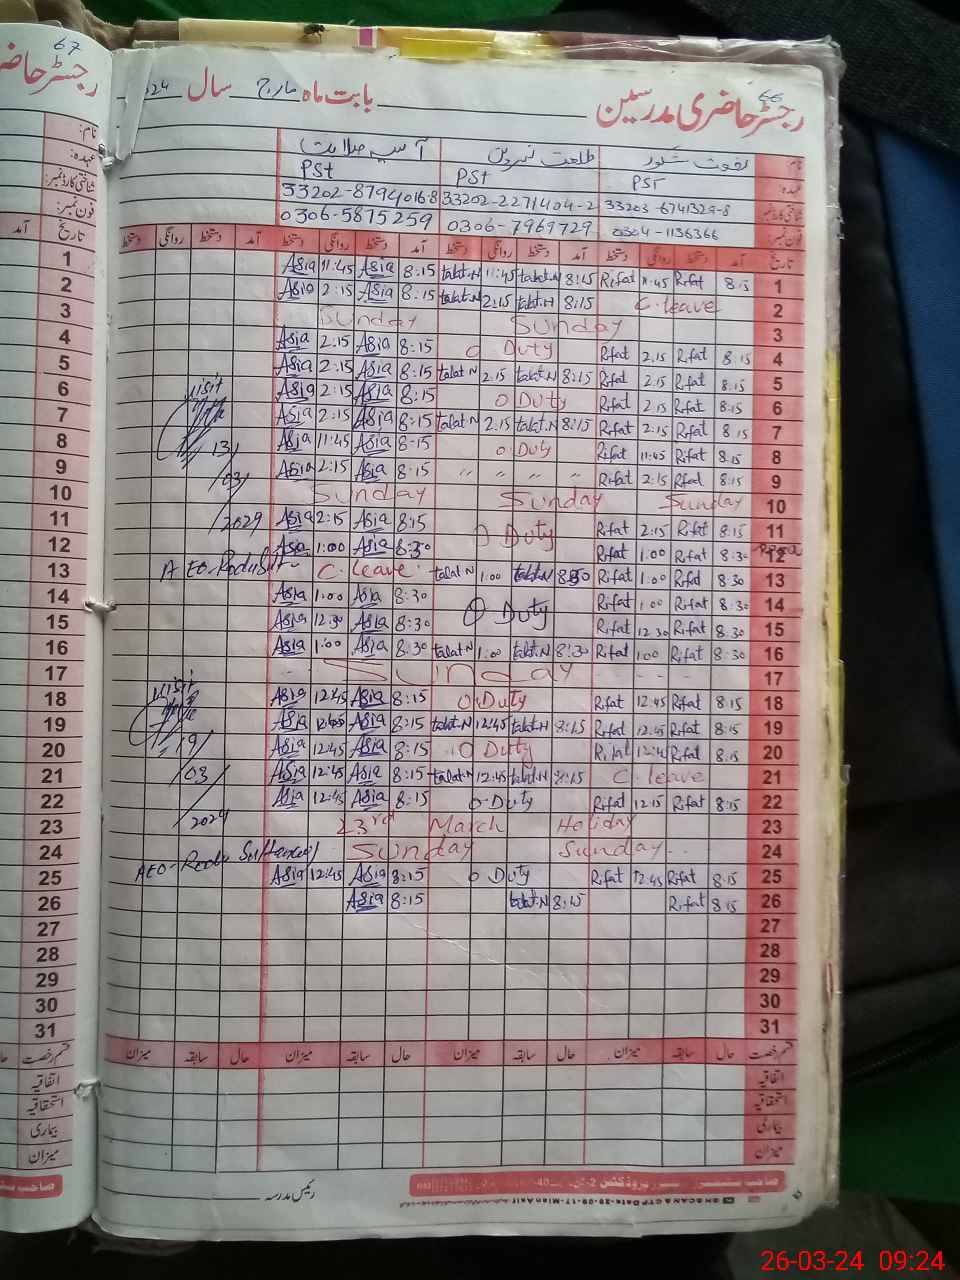 67
66
رجسٹر حاضری مدرسین بابت ماہ مارچ سال 24
نام
طلعت نسرین
آسیہ
عہدہ PST PSt PSt
شناختی کارڈ نمبر 33203-6741329-8 33202-2271404-2 33202-8794016-8
فون نمبر 0304-1136366 0306-7969729 0306-5875259
تاریخ آمد دستخط روانگی دستخط آمد دستخط روانگی دستخط آمد دستخط روانگی دستخط آمد دستخط روانگی دستخط
1 8:15 Rifat 11:45 Rifat 8:15 talat.N 11:45 talat.N 8:15 Asia 11:45 Asia 1
2 C.leave 8:15 talat.N 2:15 talat.N 8:15 Asia 2:15 Asia 2
3 Sunday Sunday 3
4 8:15 Rifat 2:15 Rifat O Duty 8:15 Asia 2:15 Asia 4
5 8:15 Rifat 2:15 Rifat 8:15 talat.N 2:15 talat N 8:15 Asia 2:15 Asia 5
6 8:15 Rifat 2:15 Rifat O Duty 8:15 Asia 2:15 Asia visit 6
7 8:15 Rifat 2:15 Rifat 8:15 talat.N 2:15 talat N 8:15 Asia 2:15 Asia 7
8 8:15 Rifat 11:45 Rifat O Duty 8:15 Asia 11:45 Asia 13/ 8
9 8:15 Rifat 2:15 Rifat " " " " 8:15 Asia 2:15 Asia 03/ 9
10 Sunday Sunday Sunday 10
11 8:15 Rifat 2:15 Rifat O Duty 8:15 Asia 2:15 Asia 11
12 8:30 Rifat 1:00 Rifat 8:30 Asia 1:00 Asia 12
13 8:30 Rifat 1:00 Rifat 8:30 talat N 1:00 talat N C.leave AEO 13
14 8:30 Rifat 1:00 Rifat O Duty 8:30 Asia 1:00 Asia 14
15 8:30 Rifat 12:30 Rifat 8:30 Asia 12:30 Asia 15
16 8:30 Rifat 1:00 Rifat 8:30 talat.N 1:00 talat N 8:30 Asia 1:00 Asia 16
17 Sunday 17
18 8:15 Rifat 12:45 Rifat O.Duty 8:15 Asia 12:45 Asia visit 18
19 8:15 Rifat 12:45 Rifat 8:15 talat.N 12:45 talat.N 8:15 Asia 12:45 Asia 19
20 8:15 Rifat Rifat O Duty 8:15 Asia 12:45 Asia 19/ 20
21 C.leave 8:15 talat.N 12:45 talat.N 8:15 Asia 12:45 Asia 03/ 21
22 8:15 Rifat 12:15 Rifat O-Duty 8:15 Asia 12:45 Asia 2024 22
23 23rd March Holiday 23
24 Sunday Sunday 24
25 8:15 Rifat 12:45 Rifat O Duty 8:15 Asia 12:45 Asia AEO 25
26 8:15 Rifat 8:15 talat.N 8:15 Asia 26
27 27
28 28
29 29
30 30
31 31
قسم رخصت حال سابقہ میزان حال سابقہ میزان حال سابقہ میزان حال سابقہ میزان قسم رخصت
اتفاقیہ اتفاقیہ
استحقاقیہ استحقاقیہ
بیماری بیماری
میزان میزان
رئیس مدرسہ
26-03-24 09:24